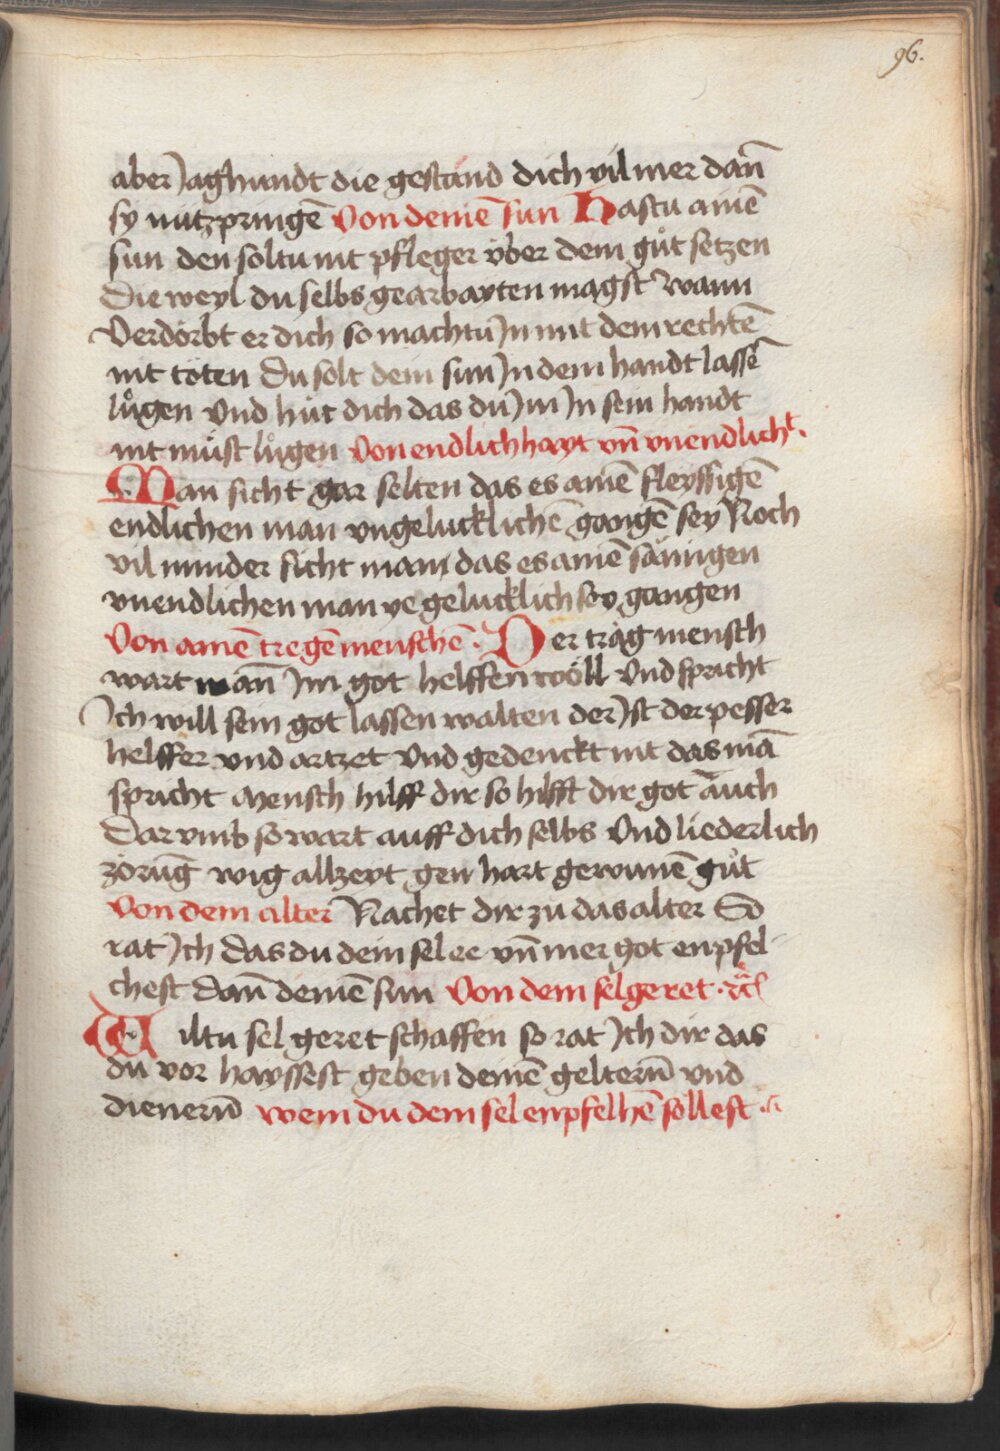 96.
aber Jaghundt die gestand dich vil mer dan̄
sy nutz pringē Von deinē sun Hastu ainē
sun den soltu nit pfleger vber dein gůt setzen
Die weyl du selbs gearbayten magst Wann
Verdörbt er dich so machtu Jn mit dem rechtē
nit töten Du solt dein sun Jn dein handt lassē
lůgen Vnd hüt dich das du Jm Jn sein handt
nit můst lůgen Von endlichhayt vn̄ vnendlicht.
Man sicht gar selten das es ainē fleyssigē
endlichen man vngelucklichē gangē sey Noch
vil minder sicht man das es ainē säinigen
vnendlichen man ye gelucklich sey gangen
Von ainē tregē menschē. Der träg mensch
wart wan̄ Jm got helffen wöll Vnd spricht
Jch will sein got lassen walten der Jst der pesser
helffer vnd artzet Vnd gedenckt nit das mā
spricht Mensch hilff dir so hilfft dir got auch
Dar vmb so wart auff dich selbs Vnd liederlich
zörūg wig allzeyt gen hart gewunnē gůt
Von dem alter Nachet dir zu das alter So
rat Jch das du dein sel ee vn̄ mer got enpfel-
chest dan̄ deinē sun Von dem selgeret. rc̄
Wiltu sel geret schaffen so rat Jch dir das
du vor hayssest geben deinē gelterū vnd
dienerū wem du dein sel enpfelhē sollest